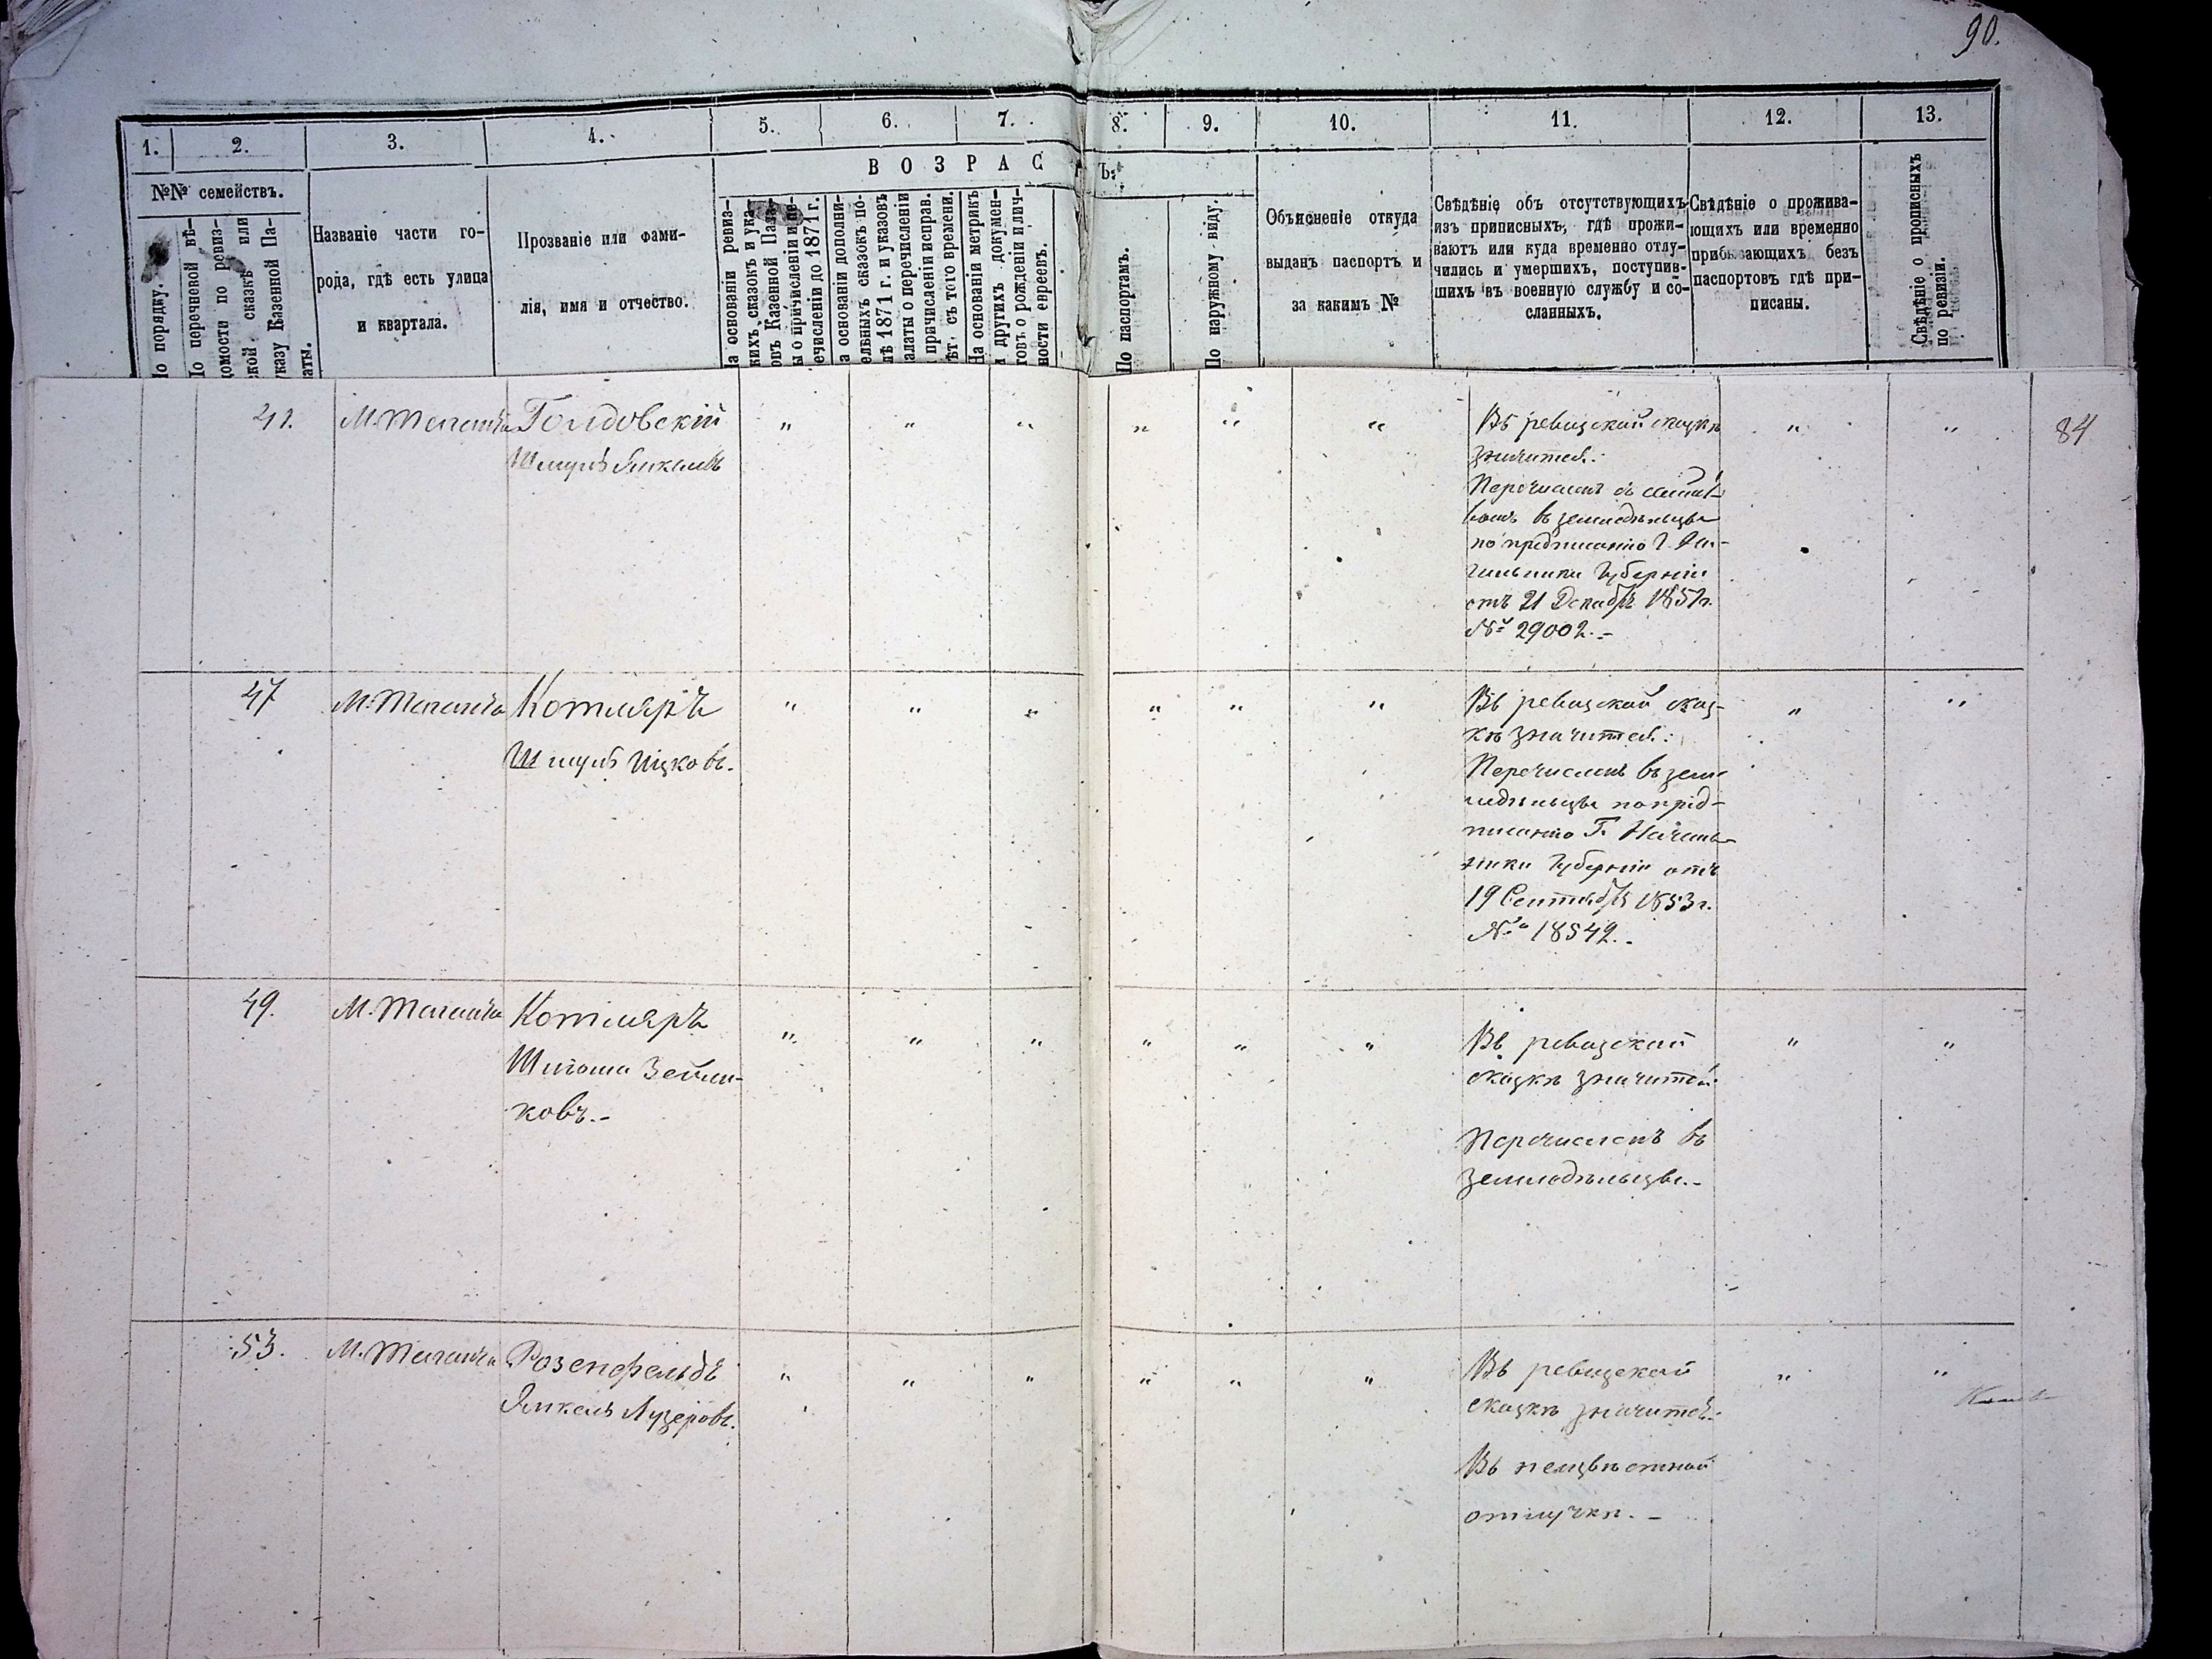 90.
1.
2.
3.
4.
5.
6.
7.
8.
9.
10.
11.
12.
13.
№№ семействъ.
По порядку.
По перечневой вѣ-
домости по ревиз-
ской сказкѣ или
указу Казенной Па-
латы.
Названіе части го-
рода, гдѣ есть улица
и квартала.
Прозваніе или фами-
лія, имя и отчество.
ВОЗРАС
Ъ:
На основаніи ревиз-
скихъ сказокъ и ука-
зовъ Казенной Пала-
ты о причисленіи и пе-
речисленіи до 1871 г.
На основаніи дополни-
тельныхъ сказокъ по-
слѣ 1871 г. и указовъ
палаты о перечисленіи
причисленіи исправ.
лѣт. съ того времени.
На основаніи метрикъ
и другихъ докумен-
товъ о рожденіи и лич-
ности евреевъ.
По паспортамъ.
По наружному виду.
Объясненіе откуда
выданъ паспортъ и
за какимъ №
Свѣдѣніе объ отсутствующихъ
изъ приписныхъ, гдѣ прожи-
ваютъ или куда временно отлу-
чились и умершихъ, поступив-
шихъ въ военную службу и со-
сланныхъ.
Свѣдѣніе о прожива-
ющихъ или временно
прибывающихъ безъ
паспортовъ гдѣ при-
писаны.
Свѣдѣніе о прописныхъ
по ревизіи.
41.
М. Таганча
Голдовскій
Шмулъ Янкелевъ
" " " " " "
Въ ревизской сказкѣ
значится:
Перечисленъ съ семей-
вомъ въ земледѣльцы
по предписанію Г. На-
чальника Губерніи
отъ 21 Декабря 1851 г.
№ 29002.-
" "
84
47
М. Таганча
Котляръ
Шмулъ Ицковъ.
" " " " " "
Въ ревизской сказ-
кѣ значится:
Перечисленъ въ зем-
ледѣльцы по пред-
писанію Г. Началь-
ника Губерніи отъ
19 Сентября 1853 г.
№ 18542.-
" "
49.
М. Таганча
Котляръ
Шлиома Зейли-
ковъ.-
" " " " " "
Въ ревизской
сказкѣ значится:
Перечисленъ въ
земледѣльцы.-
" "
53.
М. Таганча
Розенфельдъ
Янкель Лузеровъ.
" " " " " "
Въ ревизской
сказкѣ значится:
Въ неизвѣстной
отлучкѣ.-
" "